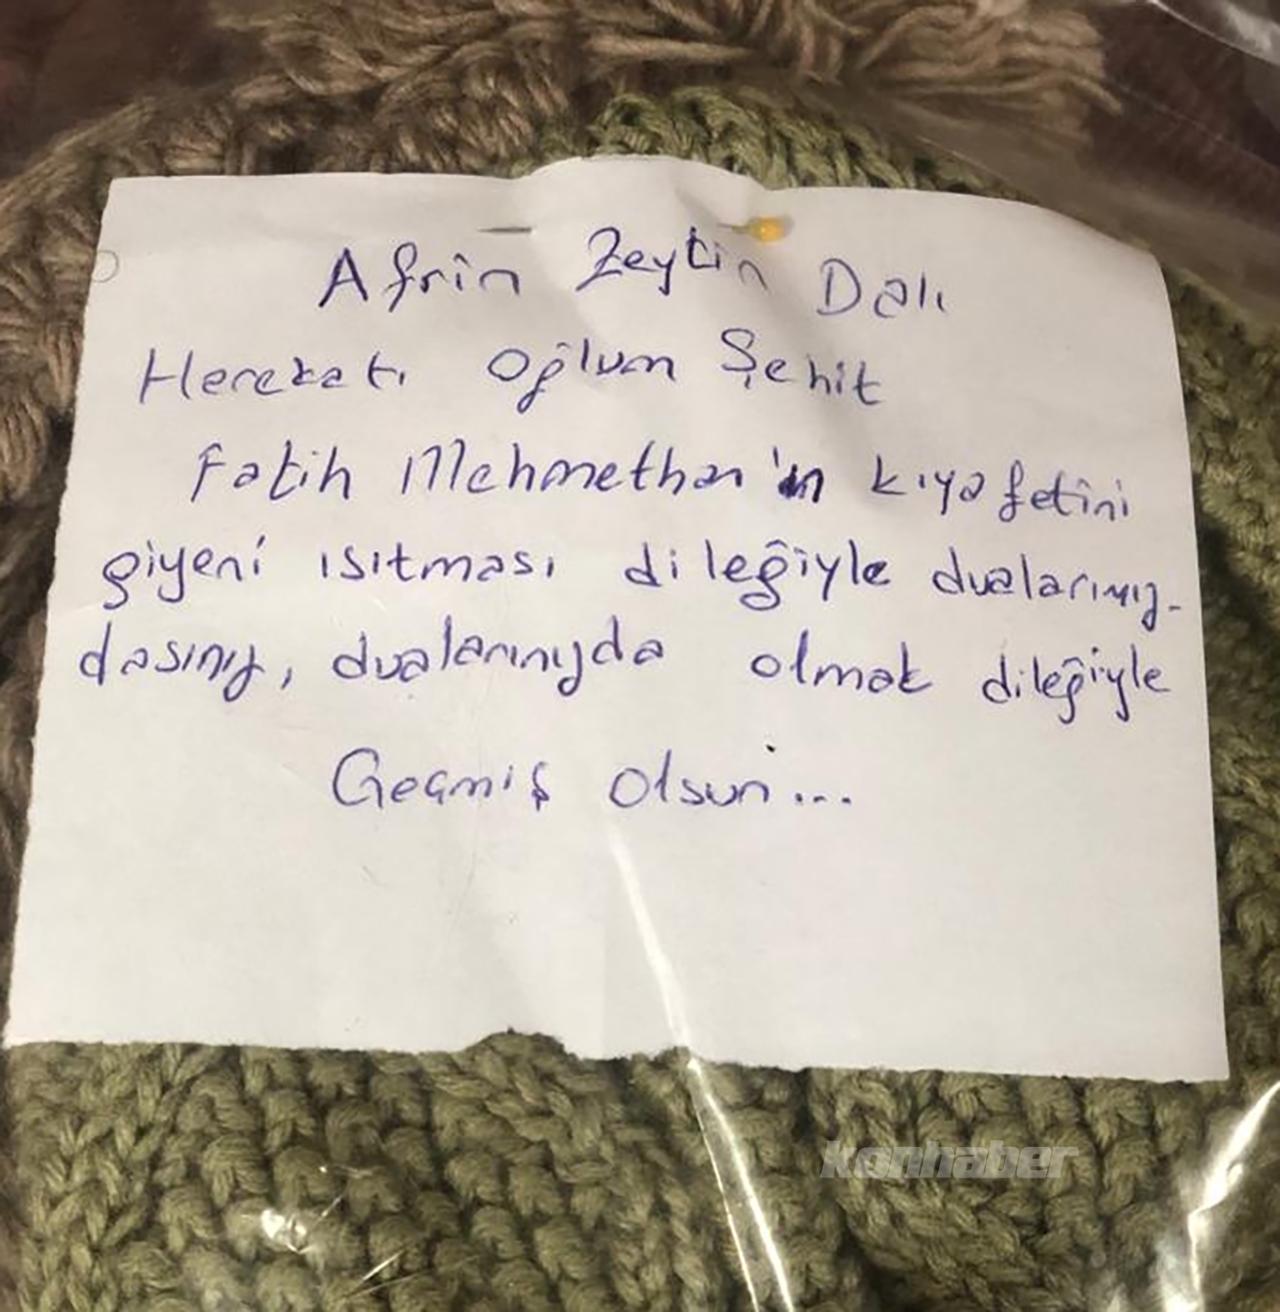 Afrin Zeytin Dalı
Herekatı Oğlum Şehit
Fatih Mehmethan'ın kıyafetini
giyeni ısıtması dileğiyle dualarımız-
dasınız, dualarınızda olmak dileğiyle
Geçmiş olsun...
konhaber